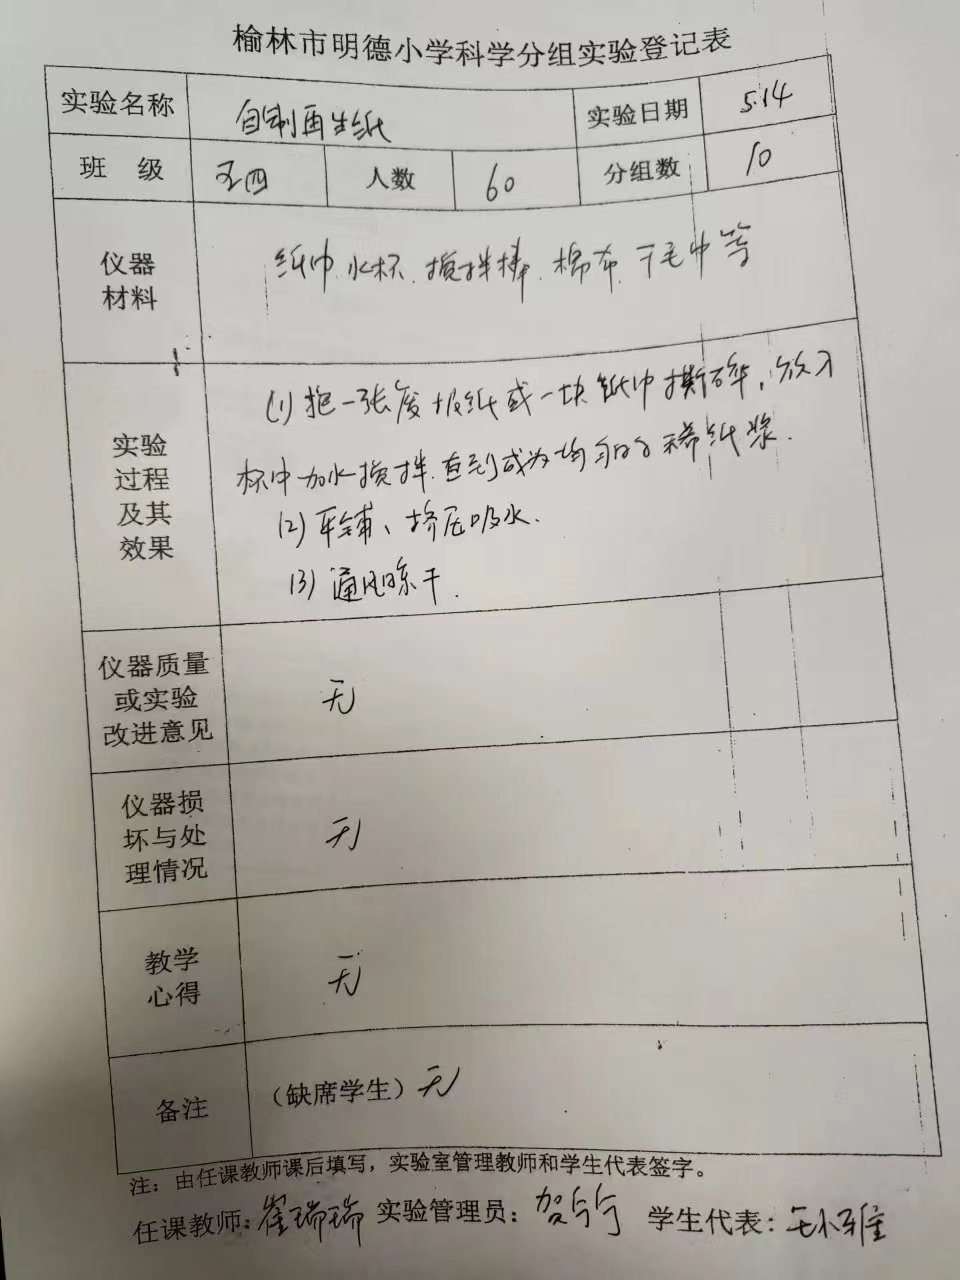 榆林市明德小学科学分组实验登记表
实验名称 自制再生纸 实验日期 5.14
班 级 五四 人数 60 分组数 10
仪器
材料
纸巾、水杯、搅拌棒、棉布、干毛巾等
实验
过程
及其
效果
(1) 把一张废报纸或一块纸巾撕碎,放入
杯中加水搅拌,直到成为均匀的稀纸浆.
(2) 平铺、挤压吸水.
(3) 通风晾干.
仪器质量
或实验
改进意见
无
仪器损
坏与处
理情况
无
教学
心得
无
备注
(缺席学生)无
注:由任课教师课后填写,实验室管理教师和学生代表签字。
任课教师:崔瑞瑞 实验管理员:贺 学生代表: